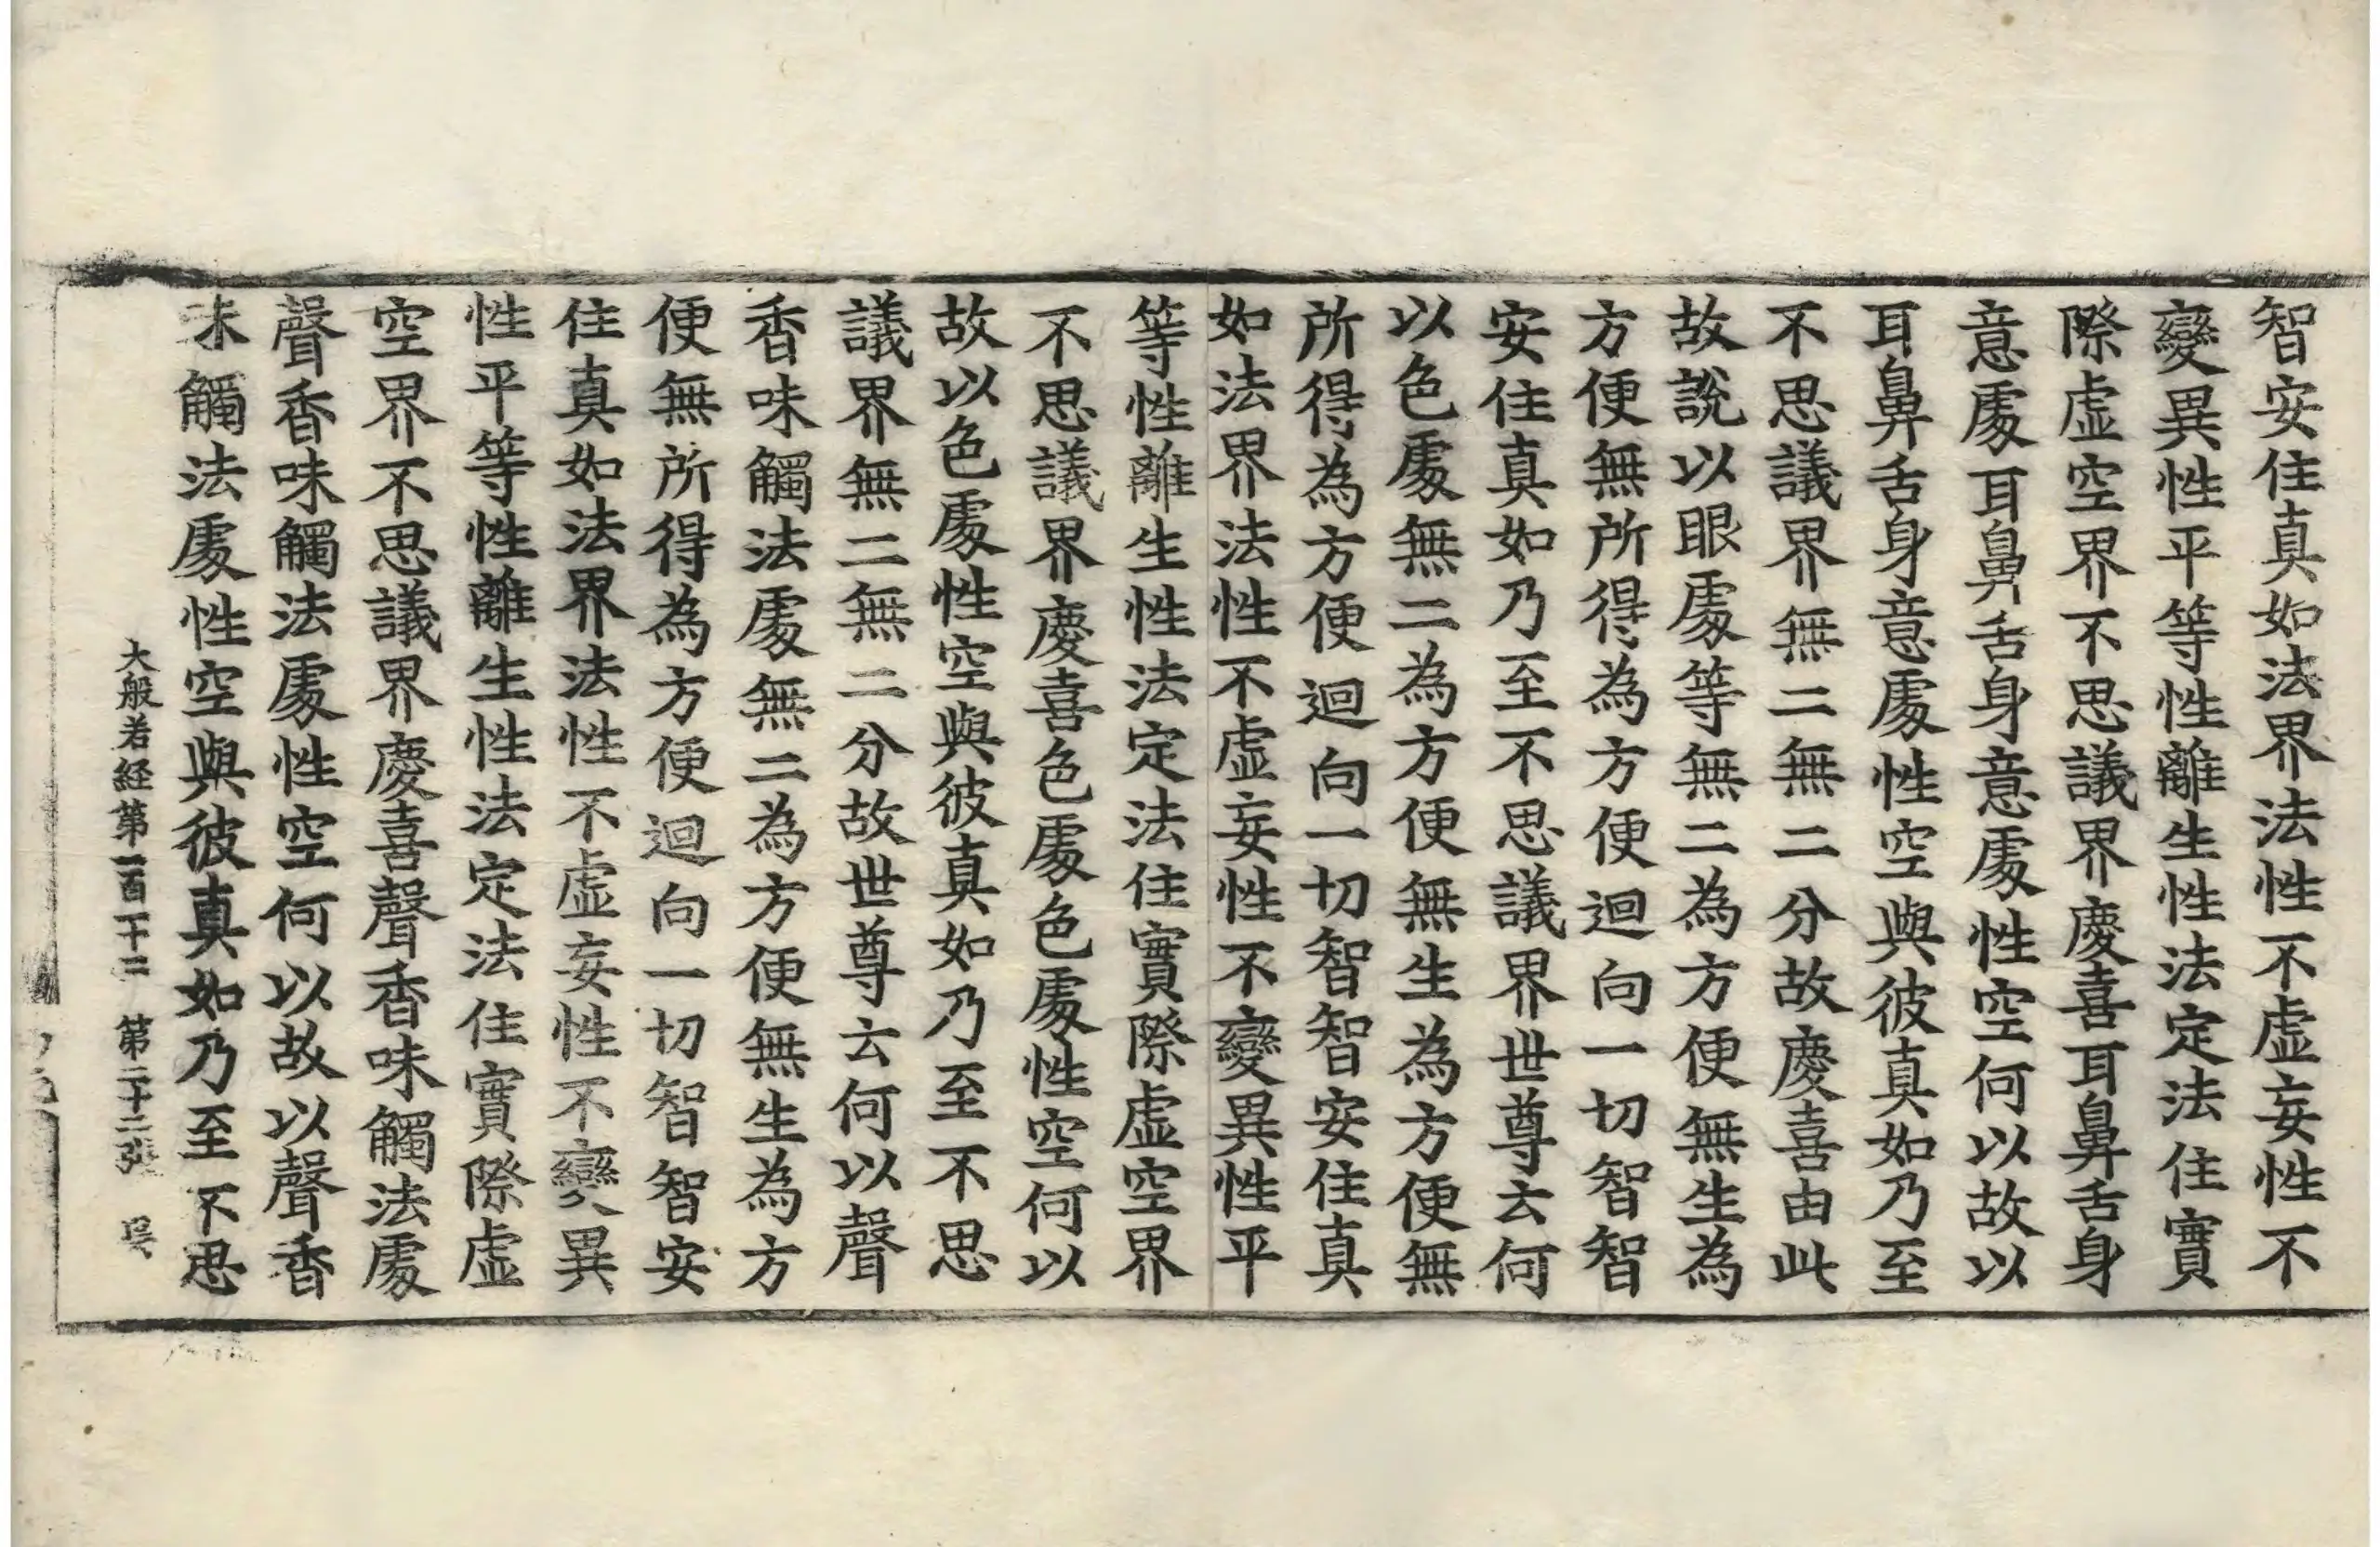 智安住真如法界法性不虛妄性不
變異性平等性離生性法定法住實
際虛空界不思議界慶喜耳鼻舌身
意處耳鼻舌身意處性空何以故以
耳鼻舌身意處性空與彼真如乃至
不思議界無二無二分故慶喜由此
故說以眼處等無二為方便無生為
方便無所得為方便迴向一切智智
安住真如乃至不思議界世尊云何
以色處無二為方便無生為方便無
所得為方便迴向一切智智安住真
如法界法性不虛妄性不變異性平
等性離生性法定法住實際虛空界
不思議界慶喜色處色處性空何以
故以色處性空與彼真如乃至不思
議界無二無二分故世尊云何以聲
香味觸法處無二為方便無生為方
便無所得為方便迴向一切智智安
住真如法界法性不虛妄性不變異
性平等性離生性法定法住實際虛
空界不思議界慶喜聲香味觸法處
聲香味觸法處性空何以故以聲香
味觸法處性空與彼真如乃至不思
大般若経第一百十二 第二十二張